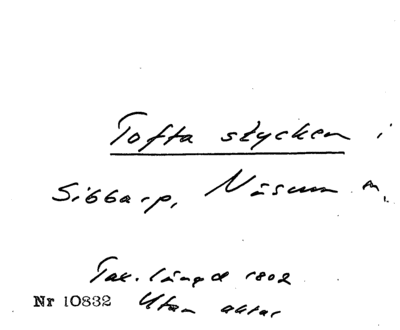 Tofta stycken i
Sibbarp, Näsum m.
Tax. längd 1802
Nr 10832 Utan aktar